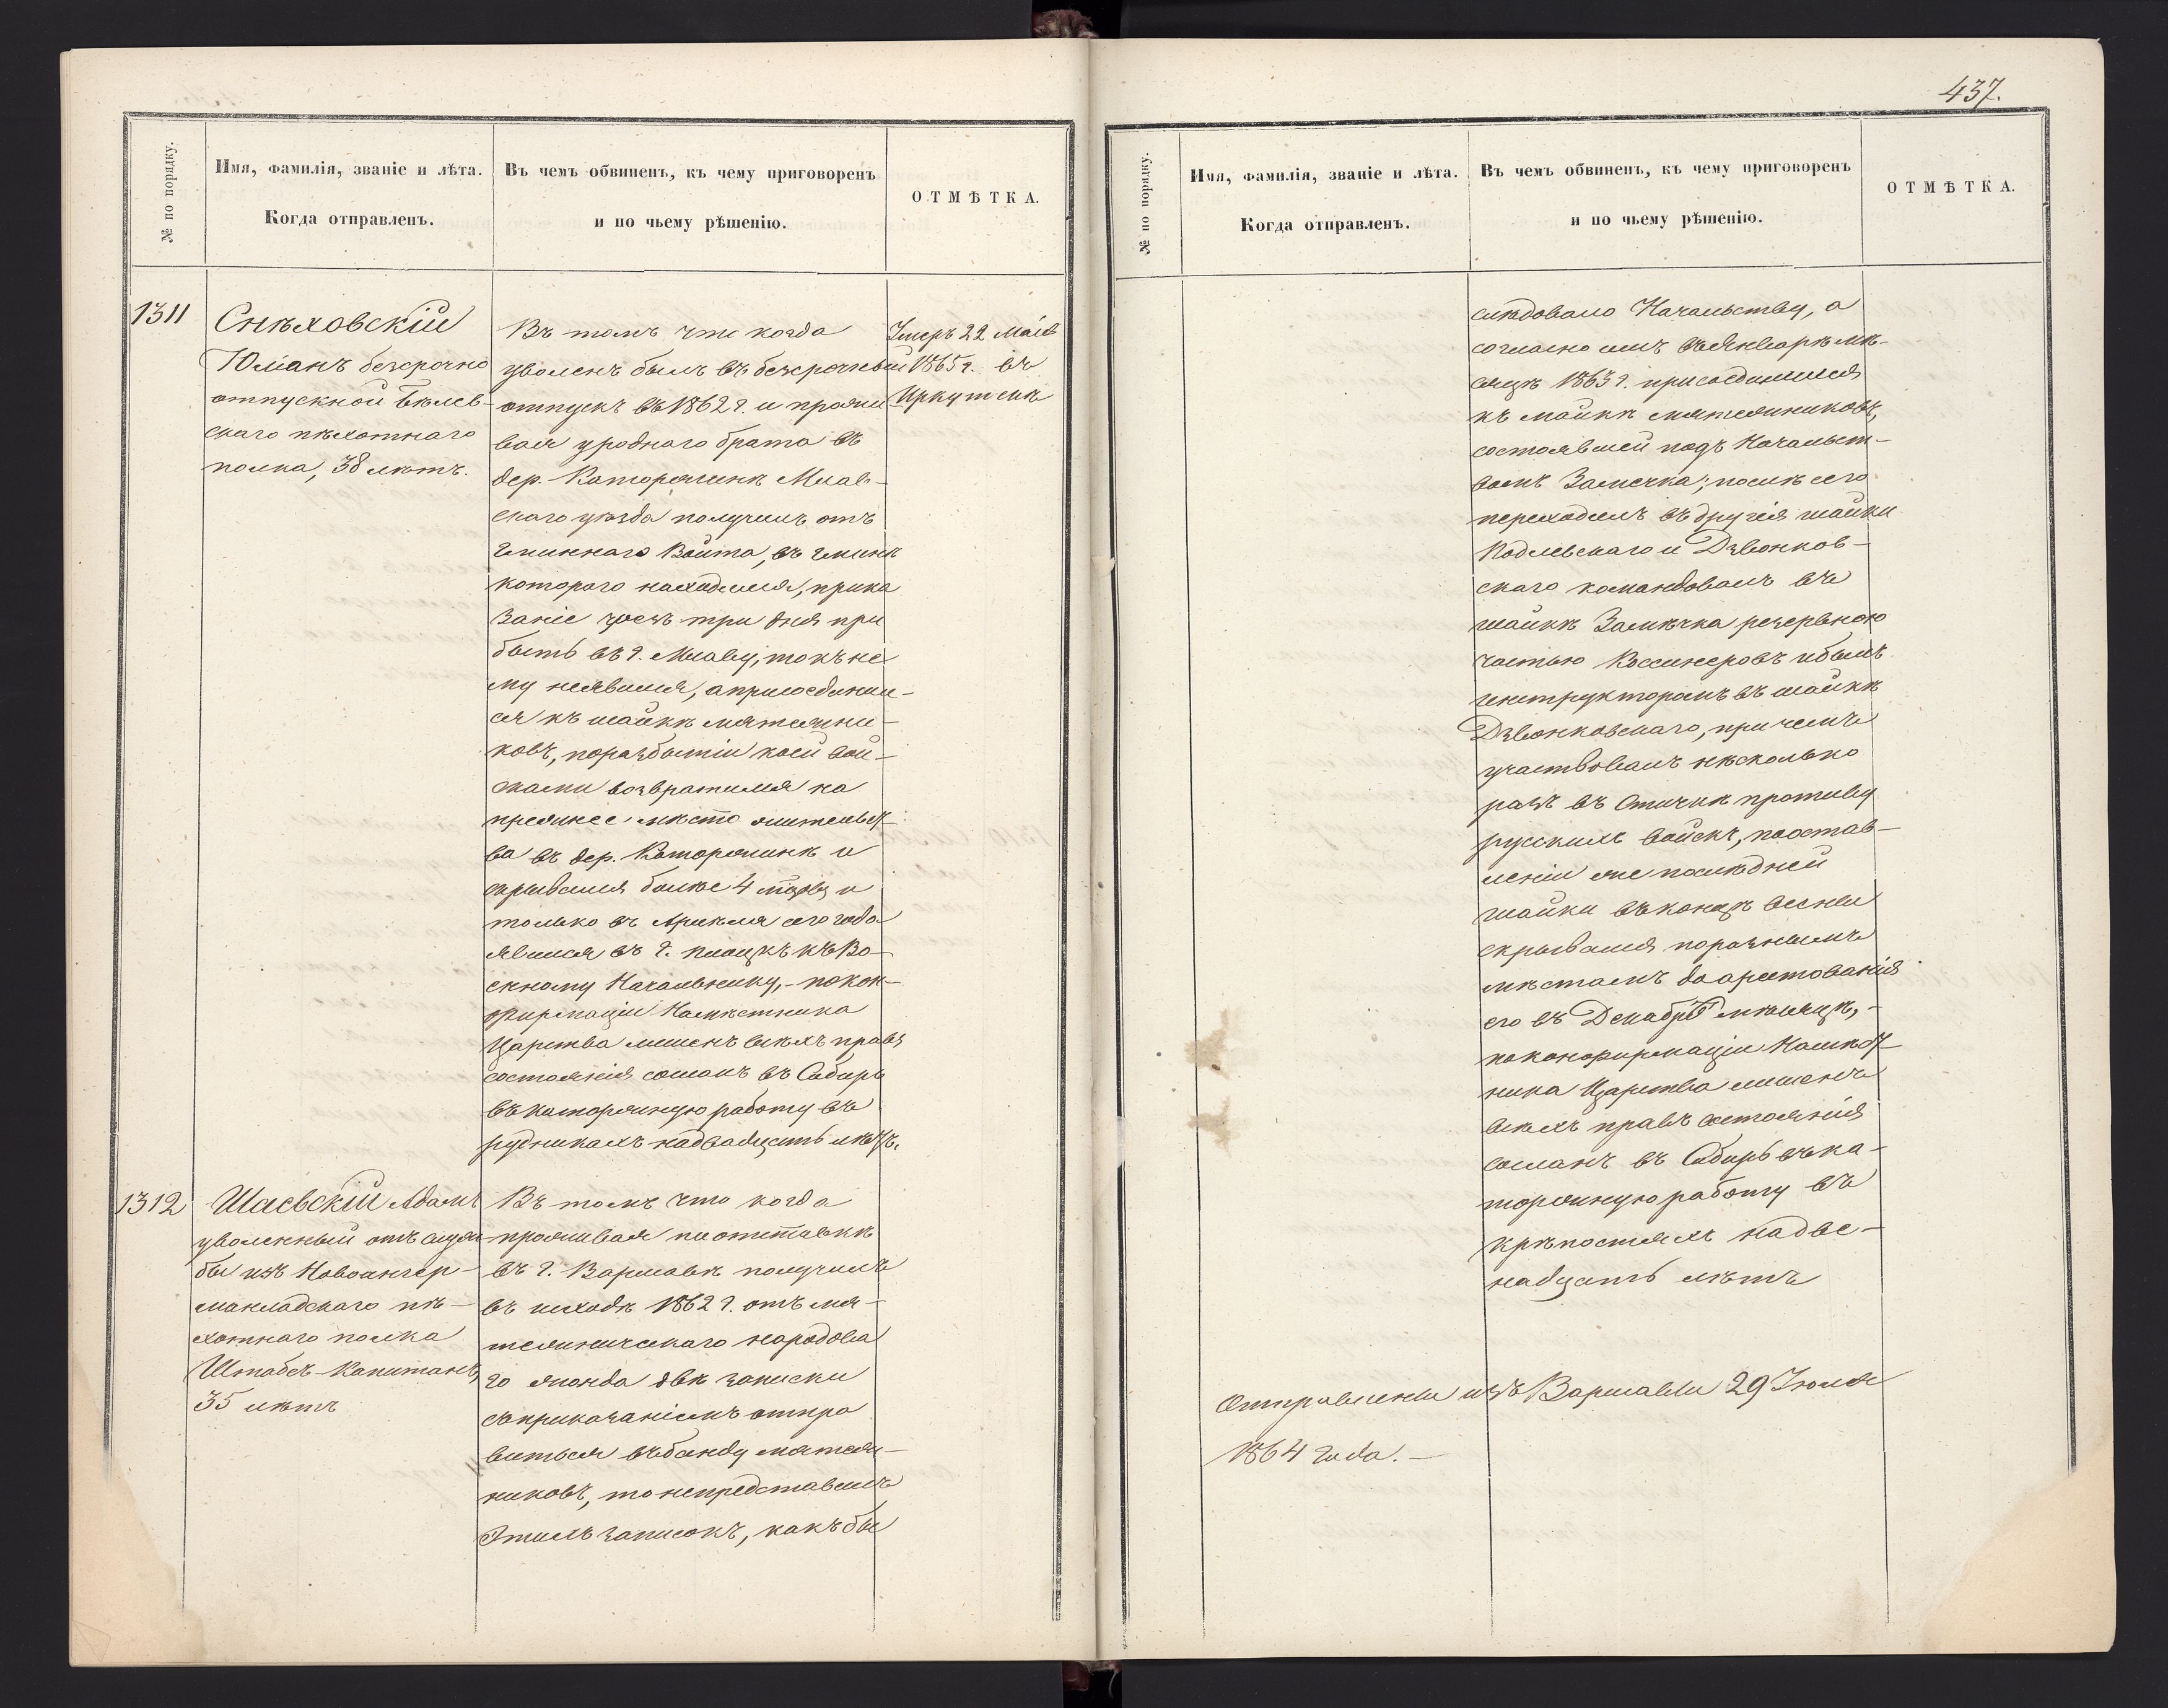 437.
№ по порядку.
Имя, фамилія, званіе и лѣта.
Когда отправленъ.
Въ чемъ обвиненъ, къ чему приговоренъ
и по чьему рѣшенію.
ОТМѢТКА.
1311
Снѣховскій
Юліанъ безсрочно
отпускной Бѣлев-
скаго пѣхотнаго
полка, 38 лѣтъ.
Въ томъ что когда
уволенъ былъ въ безсрочный
отпускъ въ 1862 г. и прожи
вая у роднаго брата въ
дер. Млав-
скаго уѣзда получилъ отъ
Гминнаго Войта, въ гминѣ
котораго находился, прика
заніе чрезъ три дня при
быть въ г. Млаву, то къ не
му неявился, а присоединил-
ся къ шайкѣ мятежни-
ковъ, по разбитіи коей вой-
сками возвратился на
прежнее мѣсто жительст-
ва въ дер. и
скрывался болѣе 4 и
только въ Апрѣлѣ сего года
явился въ г. Плоцкъ къ Во-
енному Начальнику, - по кон-
фирмаціи Намѣстника
Царства лишенъ всѣхъ правъ
состоянія сосланъ въ Сибирь
въ каторжную работу въ
рудникахъ на двадцать лѣтъ.
Умеръ 22 Мая
1865 г. въ
Иркутскѣ
1312
Шаевскій Адамъ
уволенный отъ служ
бы изъ Новоингер-
манладскаго пѣ-
хотнаго полка
Штабсъ-Капитанъ,
35 лѣтъ
Въ томъ что когда
проживая по отставкѣ
въ г. Варшавѣ получилъ
въ исходѣ 1862 г. отъ мя-
тежническаго народова
го жонда двѣ записки
съ приказаніемъ отпра
виться въ банду мятеж-
никовъ, то непредставилъ
этихъ записокъ, какъ бы
№ по порядку.
Имя, фамилія, званіе и лѣта.
Когда отправленъ.
Въ чемъ обвиненъ, къ чему приговоренъ
и по чьему рѣшенію.
ОТМѢТКА.
слѣдовало Начальству, а
согласно имъ въ Январѣ мѣ-
сяцѣ 1863 г. присоединился
къ шайкѣ мятежниковъ,
состоявшей подъ Начальст-
вомъ Замечка; послѣ сего
переходилъ въ другія шайки
Подлевскаго и Дзвонков-
скаго командовалъ въ
шайкѣ Замѣчка резервною
частью Коссинеровъ и былъ
инструкторомъ въ шайкѣ
Дзвонковскаго, при чемъ
участвовалъ нѣсколько
разъ въ стычкѣ противу
русскихъ войскъ, по остав-
леніи же послѣдней
шайки въ концѣ весны
скрывался по разнымъ
мѣстамъ до арестованія
его въ Декабрѣ мѣсяцѣ, -
по конфирмаціи Намѣст-
ника Царства лишенъ
всѣхъ правъ состоянія
сосланъ въ Сибирь въ ка-
торжную работу въ
крѣпостяхъ на две-
надцать лѣтъ
Отправлены изъ Варшавы 29 Іюля
1864 года. -